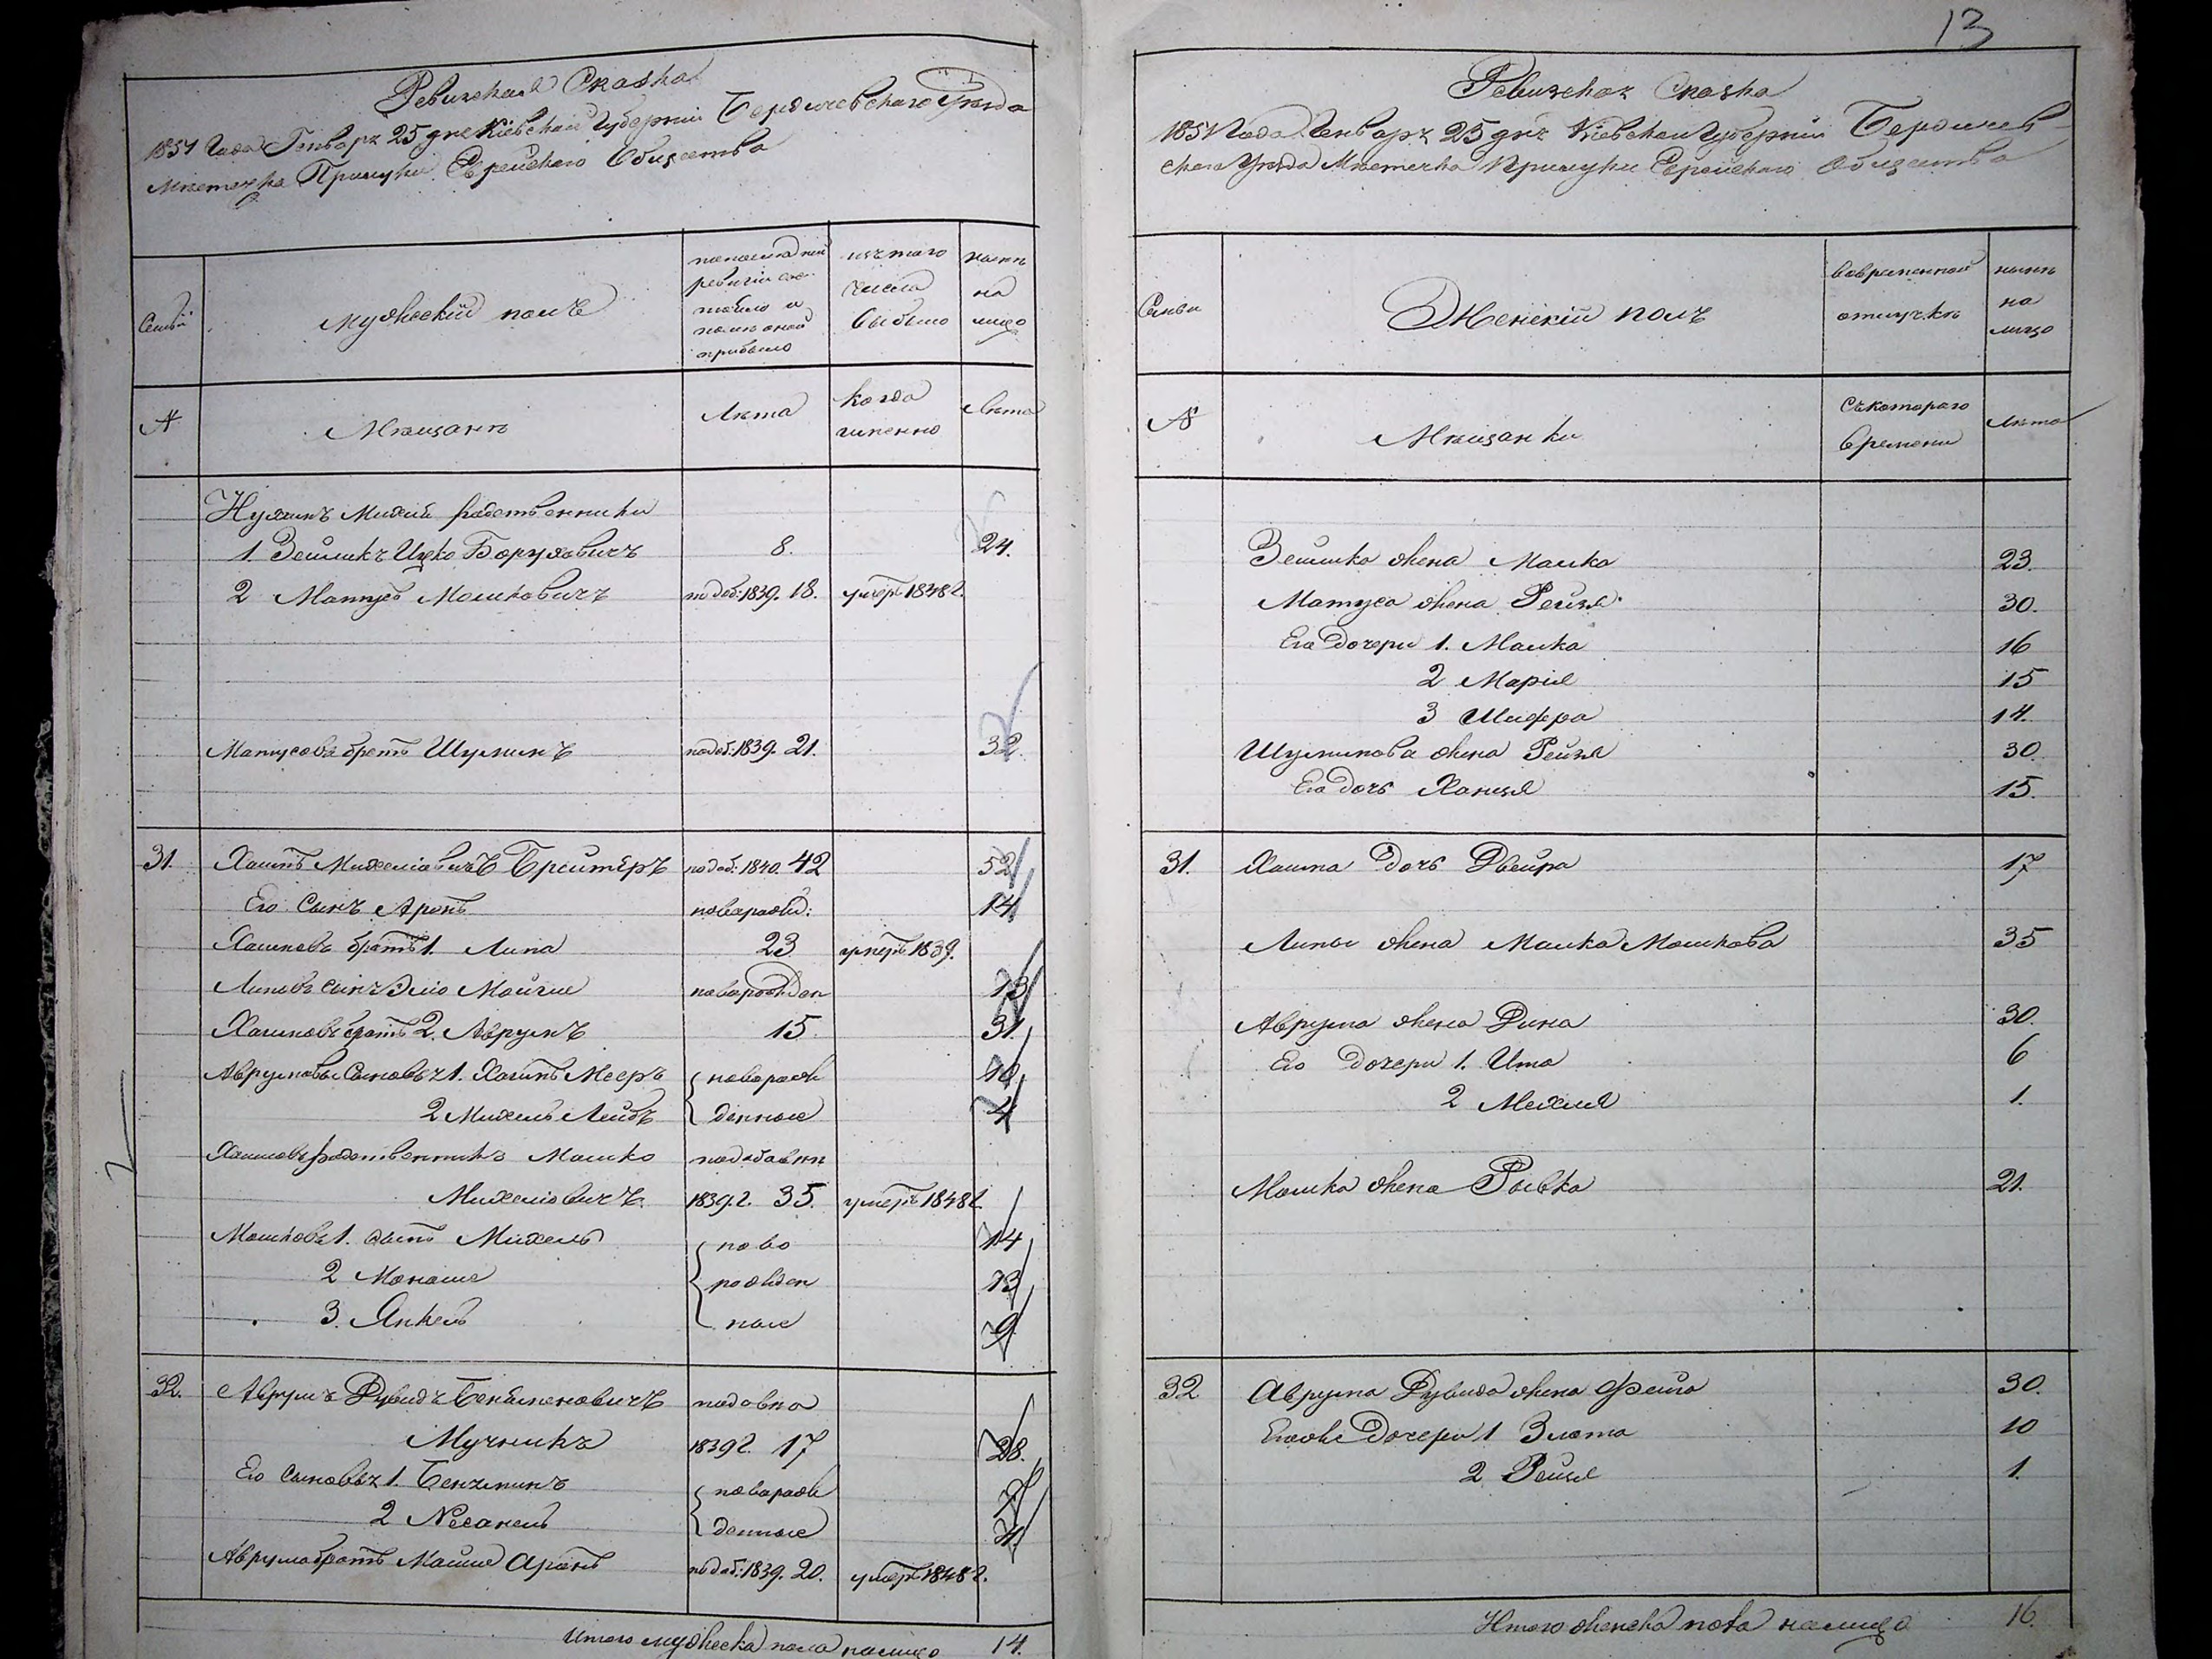 Ревизская Сказка
1851 Года Генваря 25 дне Кіевской Губерніи Бердичевскаго Уѣзда
Мѣстечка Прилуки Еврейскаго Общества
Семьи
Мужескій полъ
по последней
ревизіи сос
тояло и
послѣ оной
прибыло
изъ того
числа
выбыло
нынѣ
на
лицо
№
Мѣщанѣ
Лѣта
Когда
именно
Лѣта
Нухимъ Михля родственники
1. Зейликъ Ицко Боруховичъ 8. 24.
2 Матусъ Мошковичъ по доб: 1839. 18. умеръ 1848 г.
Матусовъ братъ Шулимъ по доб: 1839. 21. 32.
31. Хаимъ Михелювичъ Брейтеръ по доб: 1840. 42 52
Его Сынъ Аронъ новорожд: 14.
Хаимовъ братъ 1. Липа 23 умеръ 1839.
Липовъ сынъ Элио Мойше новорожден 13
Хаимовъ братъ 2. Аврумъ 15. 31.
Аврумовы Сыновья 1. Хаимъ Мееръ новорож 10
2 Михель Лейбъ денные 4
Хаимовъ родственникъ Мошко по добавкѣ
Михелювичъ 1839 г. 35. умеръ 1848 г.
Мошковъ 1. сынъ Михель ново 14
2 Монаше рожден 13
3. Янкель ные 9
32. Аврумъ Дувидъ Беньяменовичъ
Мучникъ 1839 г. 17 28.
Его сыновья 1. Бенземинъ новорож 7
2 Несанель денные 4.
Аврума братъ Мойше Аронъ по доб: 1839. 20. умеръ 1848 г.
Итого мужеска пола налицо 14.
13
Ревизская Сказка
1851 Года Генваря 25 дня Кіевской Губерніи Бердичев
скаго Уѣзда Мѣстечка Прилуки Еврейскаго Общества
Семьи
Женскій полъ
во временной
отлучкѣ
нынѣ
на
лицо
№
Мѣщанки
Съ котораго
времени
Лѣта
Зейлика жена Малка 23.
Матуса жена Рейзя 30.
Его Дочери 1. Малка 16
2 Марія 15
3 Шифра 14.
Шулимова жена Рейзя 30.
Его дочь Ханця 15.
31. Хаима дочь Двейра 17
Липы жена Малка Мошкова 35
Аврума жена Дина 30.
Его дочери 1. Ита 6
2 Михля 1.
Мошка жена Рывка 21.
32 Аврума Дувида жена Фейга 30.
Егожъ Дочери 1 Злота 10
2 Рейзя 1.
Итого женска пола налицо 16.